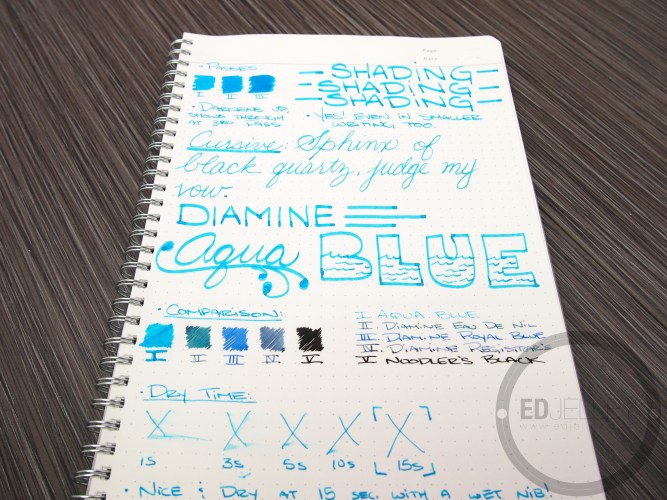 Page:
Date:
· PASSES
I II III
— SHADING —
— SHADING —
— SHADING —
· DARKENS UP,
SHOWS THROUGH
AT 3RD PASS
· YES! EVEN IN SMALLER
WRITING TOO.
Cursive: Sphinx of
black quartz, judge my
vow.
DIAMINE
Aqua BLUE
· COMPARISON:
I II III IV V
I AQUA BLUE
II. DIAMINE EAU DE NIL
III DIAMINE ROYAL BLUE
IV. DIAMINE REGISTRAR'S
V NOODLER'S BLACK
· DRY TIME:
X X X X X
1S 3S 5S 10S 15S
· NICE & DRY AT 15 SEC. WITH A WET NIB!
EDJELLEY